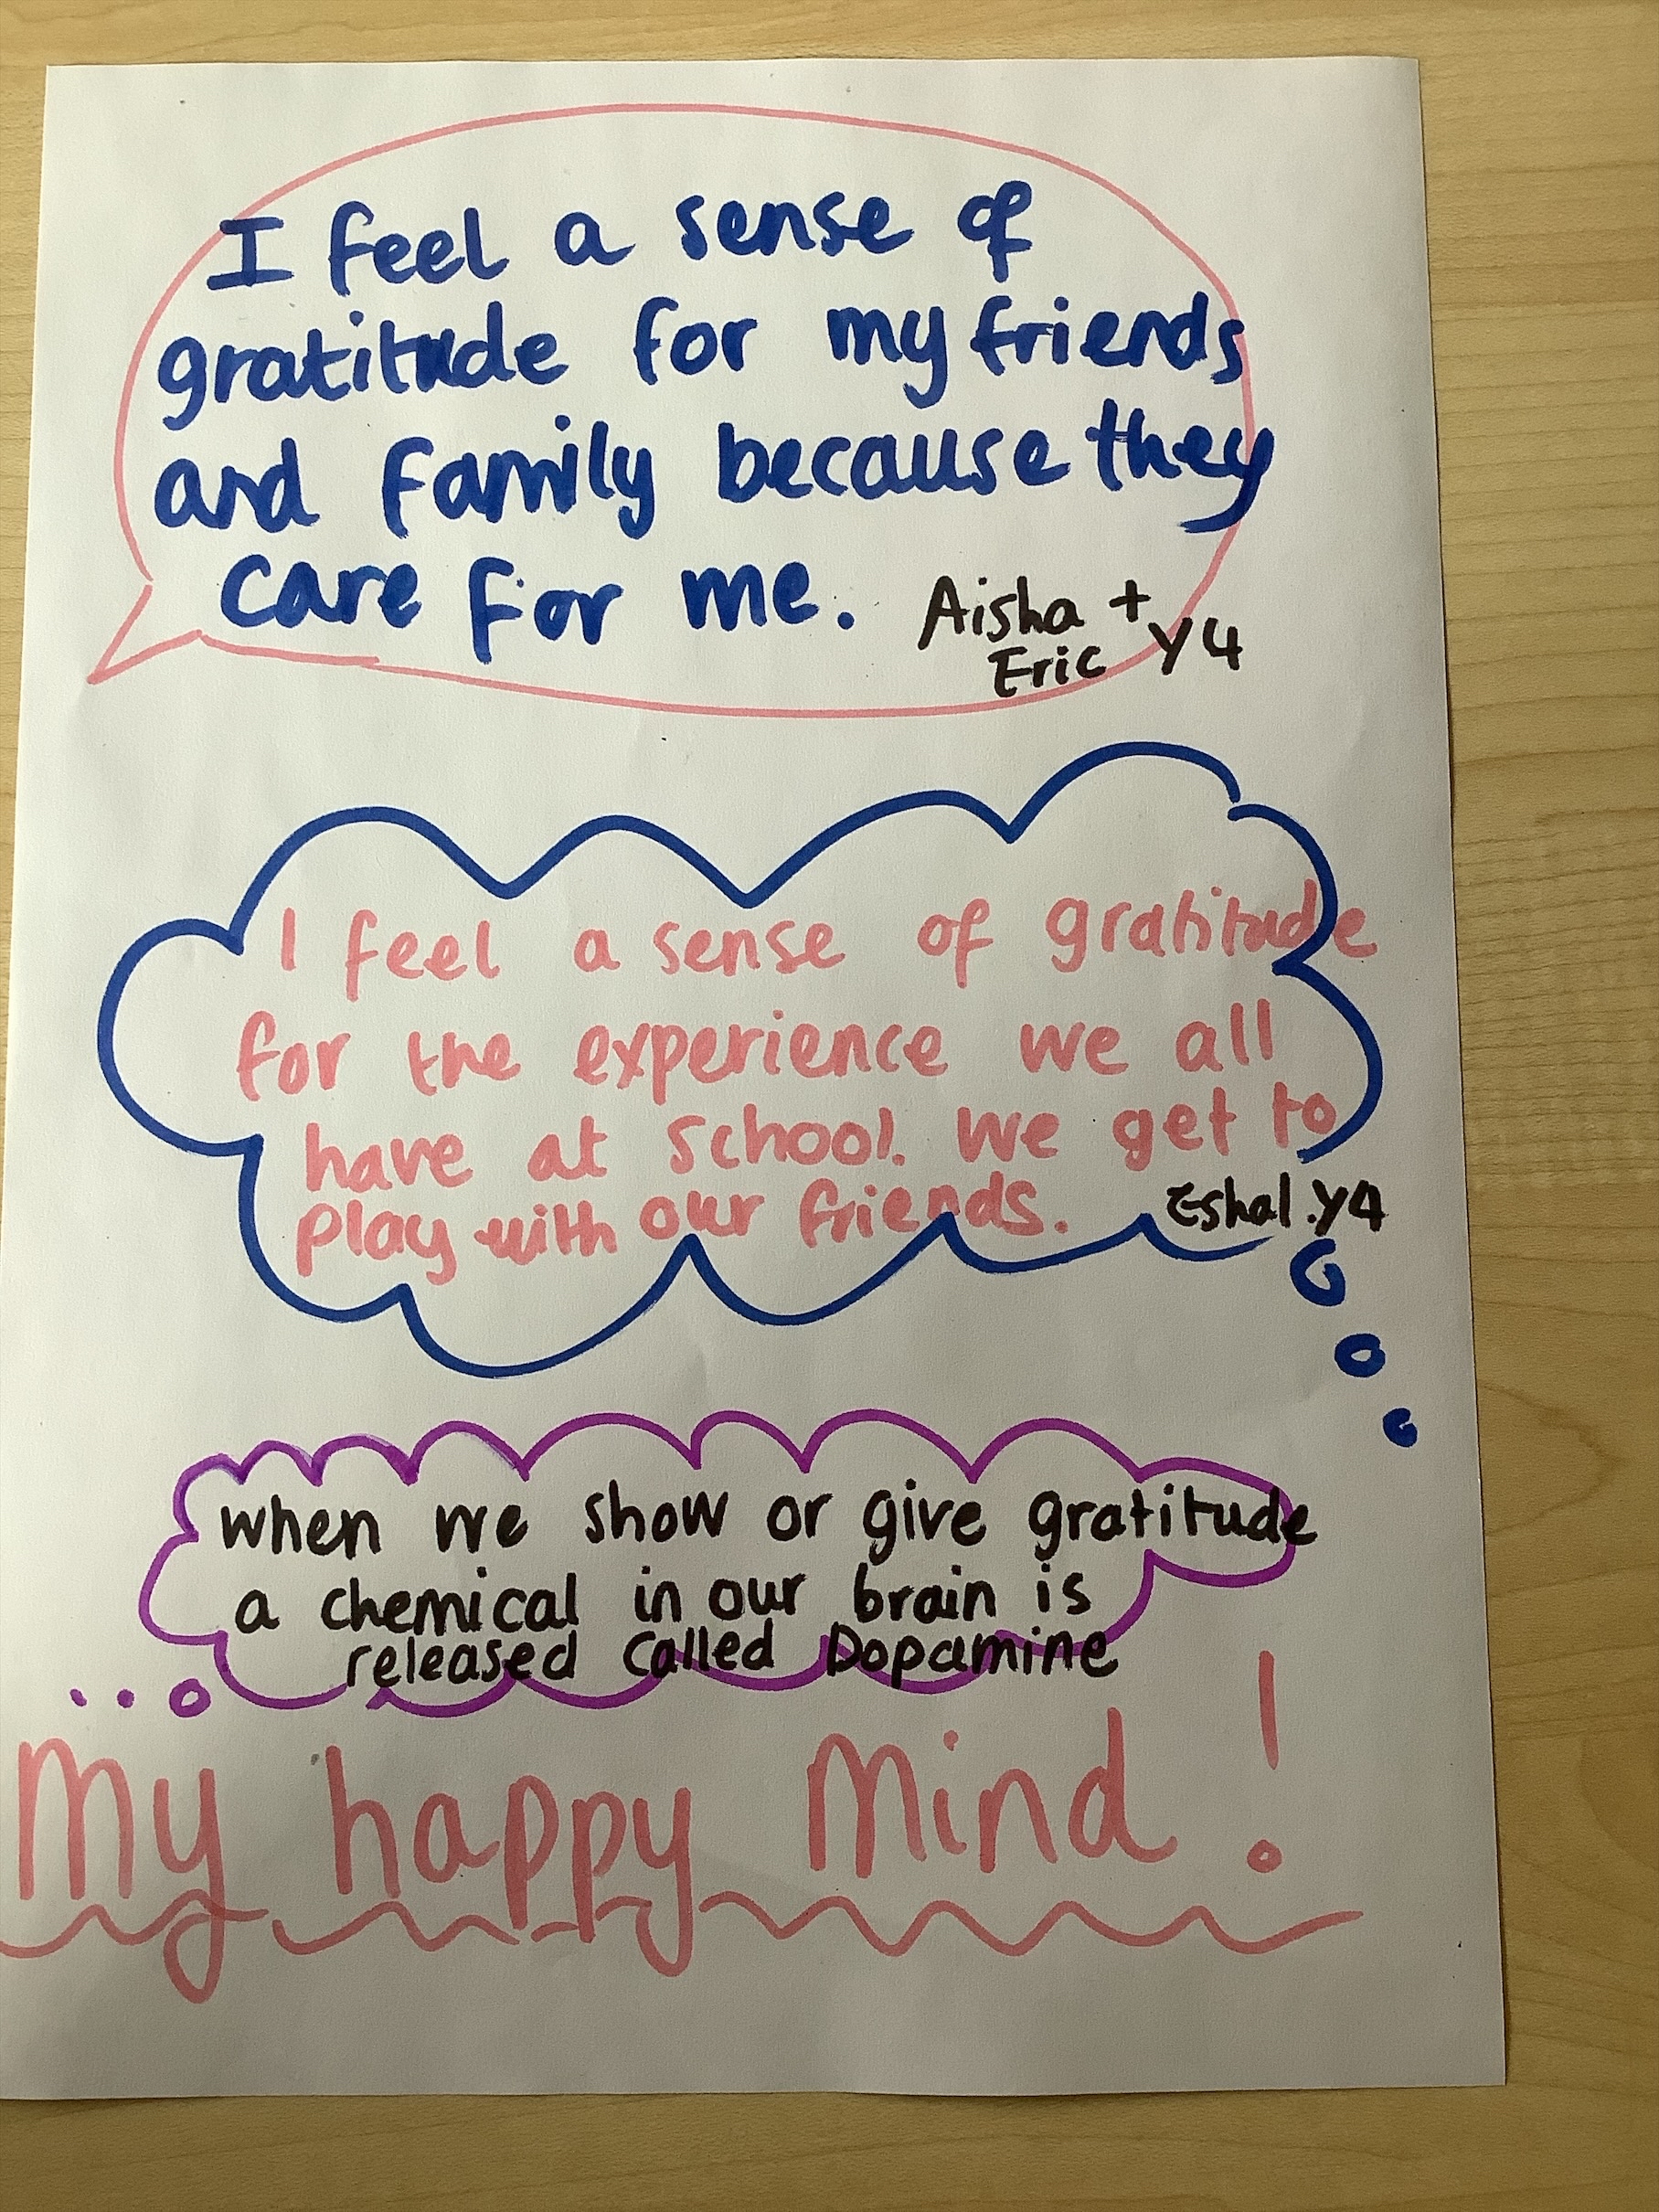 I feel a sense of
gratitude for my friends
and family because they
care for me.
Aisha +
Eric Y4
I feel a sense of gratitude
for the experience we all
have at school. We get to
play with our friends.
Eshal .Y4
when we show or give gratitude
a chemical in our brain is
released called Dopamine
My happy Mind!